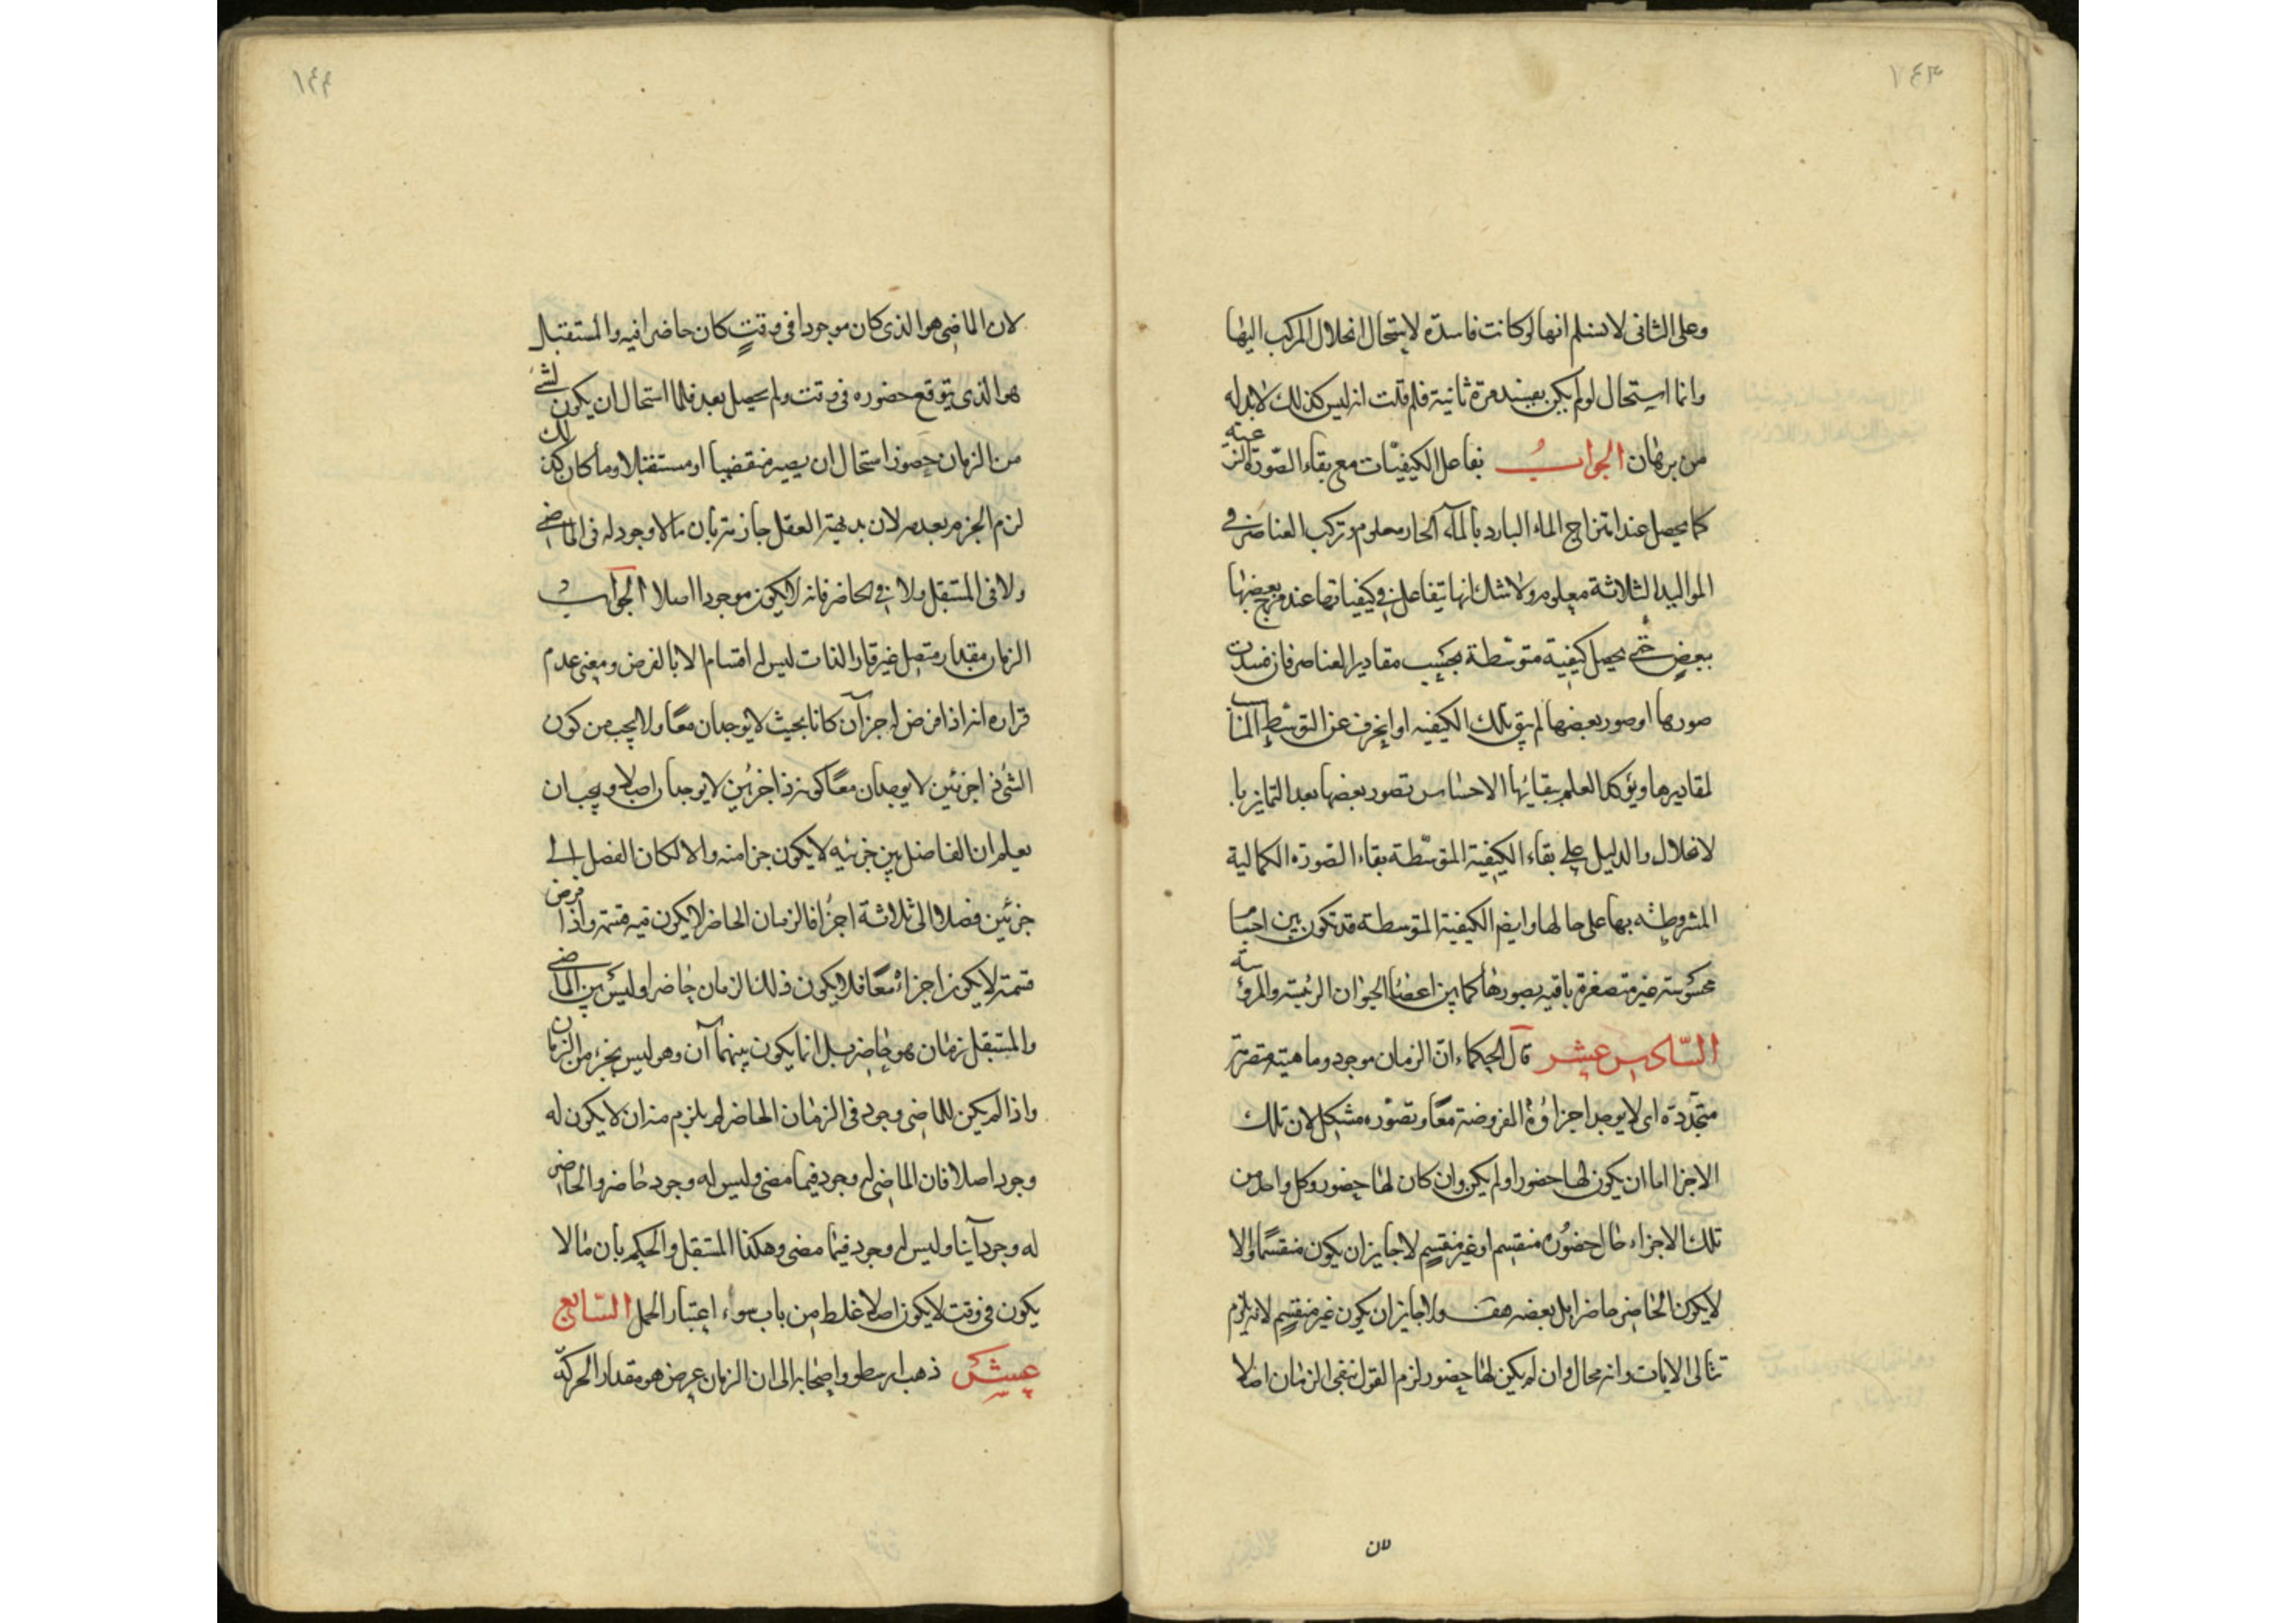 ١٤٣
وعلى الثانى لا نسلم انها لو كانت فاسدة لاستحال انحلال المركب اليها
وانما استحال لو لم يكن بعينه مرة ثانية فلم قلت انه ليس كذلك لابد له
من برهان الجواب تفاعل الكيفيات مع بقاء الصورة النوعية
كما يحصل عند امتزاج الماء البارد بالماء الحار معلوم وتركب العناصر فى
المواليد الثلاثة معلوم ولا شك انها تتفاعل فى كيفياتها عند مزج بعضها
ببعض حتى يحصل كيفية متوسطة بحسب مقادير العناصر فان فسدت
صورها او صور بعضها لم يبق تلك الكيفيه او ينحرف عن التوسط المناسب
لمقاديرها ويؤكد العلم ببقائها الاحساس بصور بعضها بعد التمايز با
لانحلال والدليل على بقاء الكيفية المتوسطة بقاء الصورة الكمالية
المشروطه بها على حالها وايضا الكيفية المتوسطة قد تكون بين اجسام
محسوسة غير متصغرة باقيه بصورها كما بين اعضاء الحيوان الرئيسة والمرؤسة
السادس عشر قال الحكماء ان الزمان موجود وماهيته متصرمة
متجددة اى لا يوجد اجزاؤه المفروضة معا وتصوره مشكل لان تلك
الاجزا اما ان يكون لها حضور او لم يكن وان كان لها حضور وكل واحد من
تلك الاجزاء حال حضوره منقسم او غير منقسم لا جايز ان يكون منقسما والا
لا يكون الحاضر حاضرا بل بعضه هف ولا جايز ان يكون غير منقسم لانه يلزم
تتالى الانات وانه محال وان لم يكن لها حضور لزم القول بنفى الزمان اصلا
لان
١٤٤
لان الماضى هو الذى كان موجودا فى وقت كان حاضرا فيه والمستقبل
هو الذى يتوقع حضوره فى وقت ولم يحصل بعد فلما استحال ان يكون لشئ
من الزمان حضور استحال ان يصير منقضيا او مستقبلا وما كان كذلك
لزم الجزم بعدمه لان بديهة العقل جازمة بان ما لا وجود له فى الماضى
ولا فى المستقبل ولا فى الحاضر فانه لا يكون موجودا اصلا الجواب
الزمان مقدار متصل غير قار الذات ليس له اقسام الا بالفرض ومعنى عدم
قراره انه اذا فرض له جزآن كانا بحيث لا يوجدان معا ولا يجب من كون
الشئ ذا جزئين لا يوجدان معا كونه ذا جزئين لا يوجدان اصلا ويجب ان
يعلم ان الفاصل بين جزئيه لا يكون جزا منه والا لكان الفصل الى
جزئين فصلا الى ثلاثة اجزا فالزمان الحاضر لا يكون فيه قسمة واذا فرض
قسمته لا يكون اجزاءه معا فلا يكون ذلك الزمان حاضرا وليس بين الماضى
والمستقبل زمان هو حاضر بل انما يكون بينهما آن وهو ليس بجزء من الزمان
واذا لم يكن للماضى وجود فى الزمان الحاضر لم يلزم منه ان لا يكون له
وجود اصلا فان الماضى له وجود فيما مضى وليس له وجود حاضر والحاضر
له وجود آنا وليس له وجود فيما مضى وهكذا المستقبل والحكم بان ما لا
يكون فى وقت لا يكون اصلا غلط من باب سوء اعتبار الحمل السابع
عشر ذهب ارسطو واصحابه الى ان الزمان عرض هو مقدار الحركة